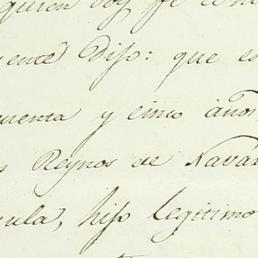 quien doy fe con
ente Dijo: que es
uenta y cinco años
s Reynos de Navar
ula, hijo legitimo